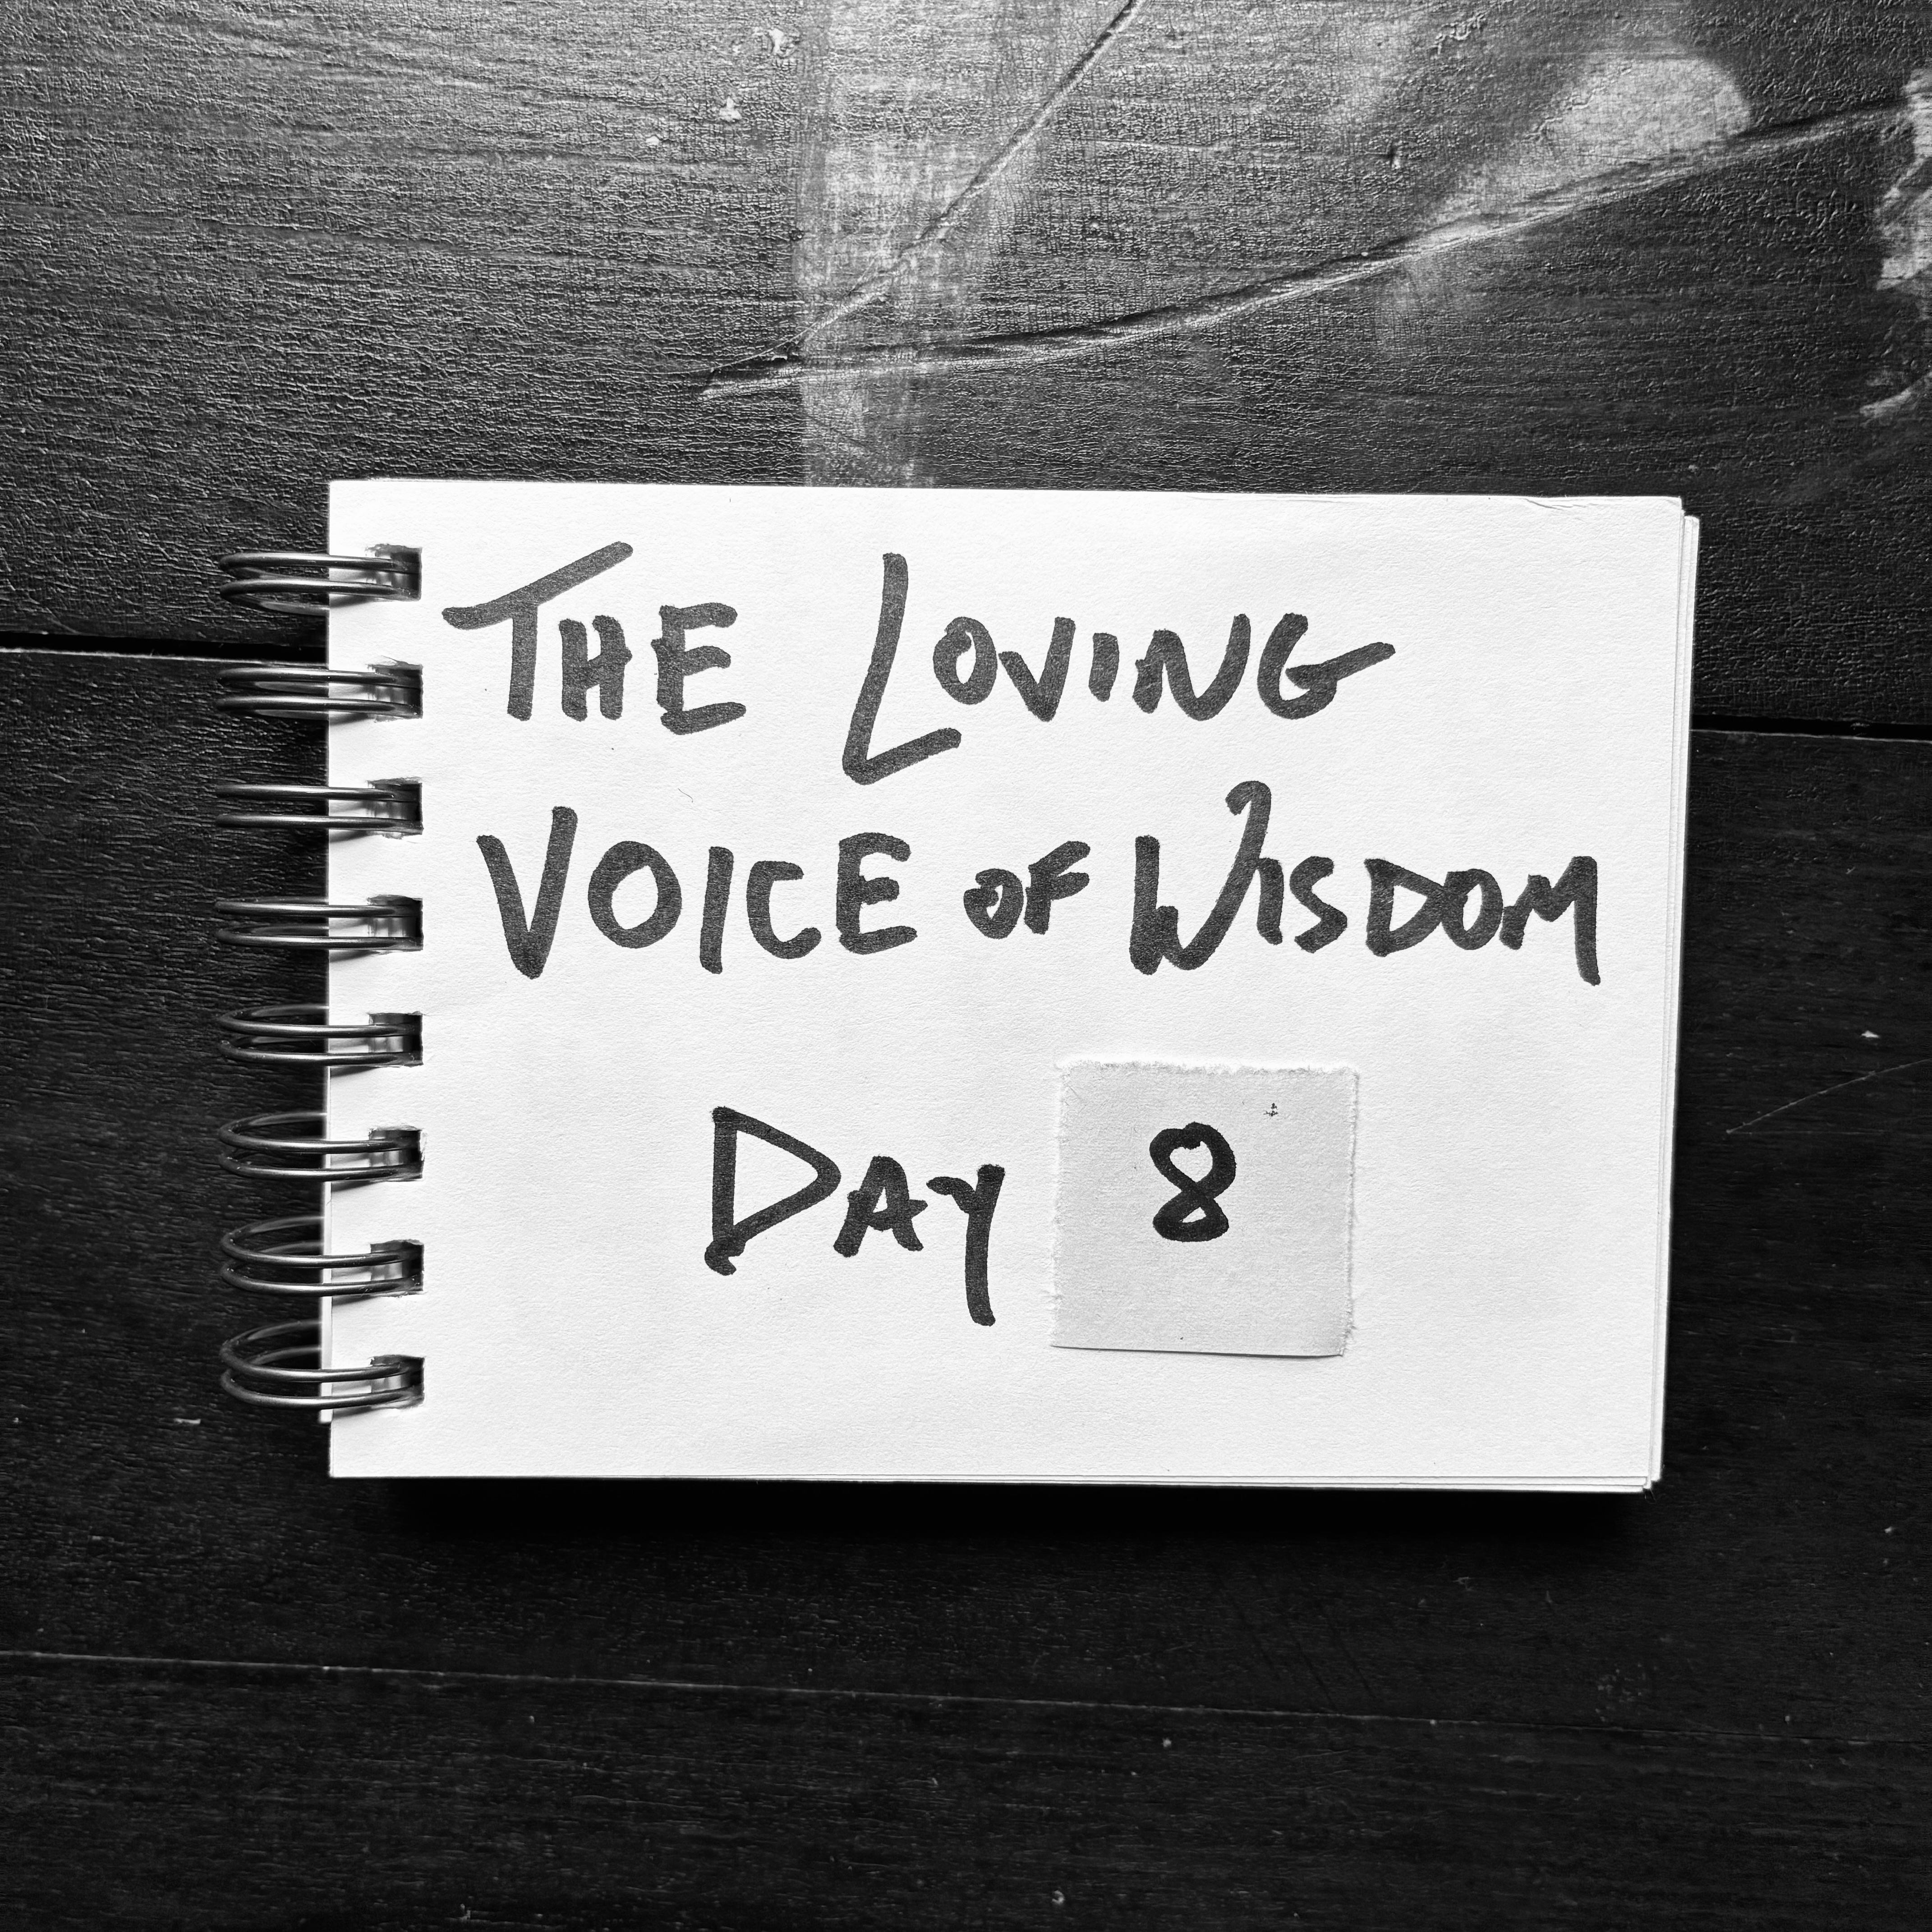 THE LOVING
VOICE OF WISDOM
DAY 8